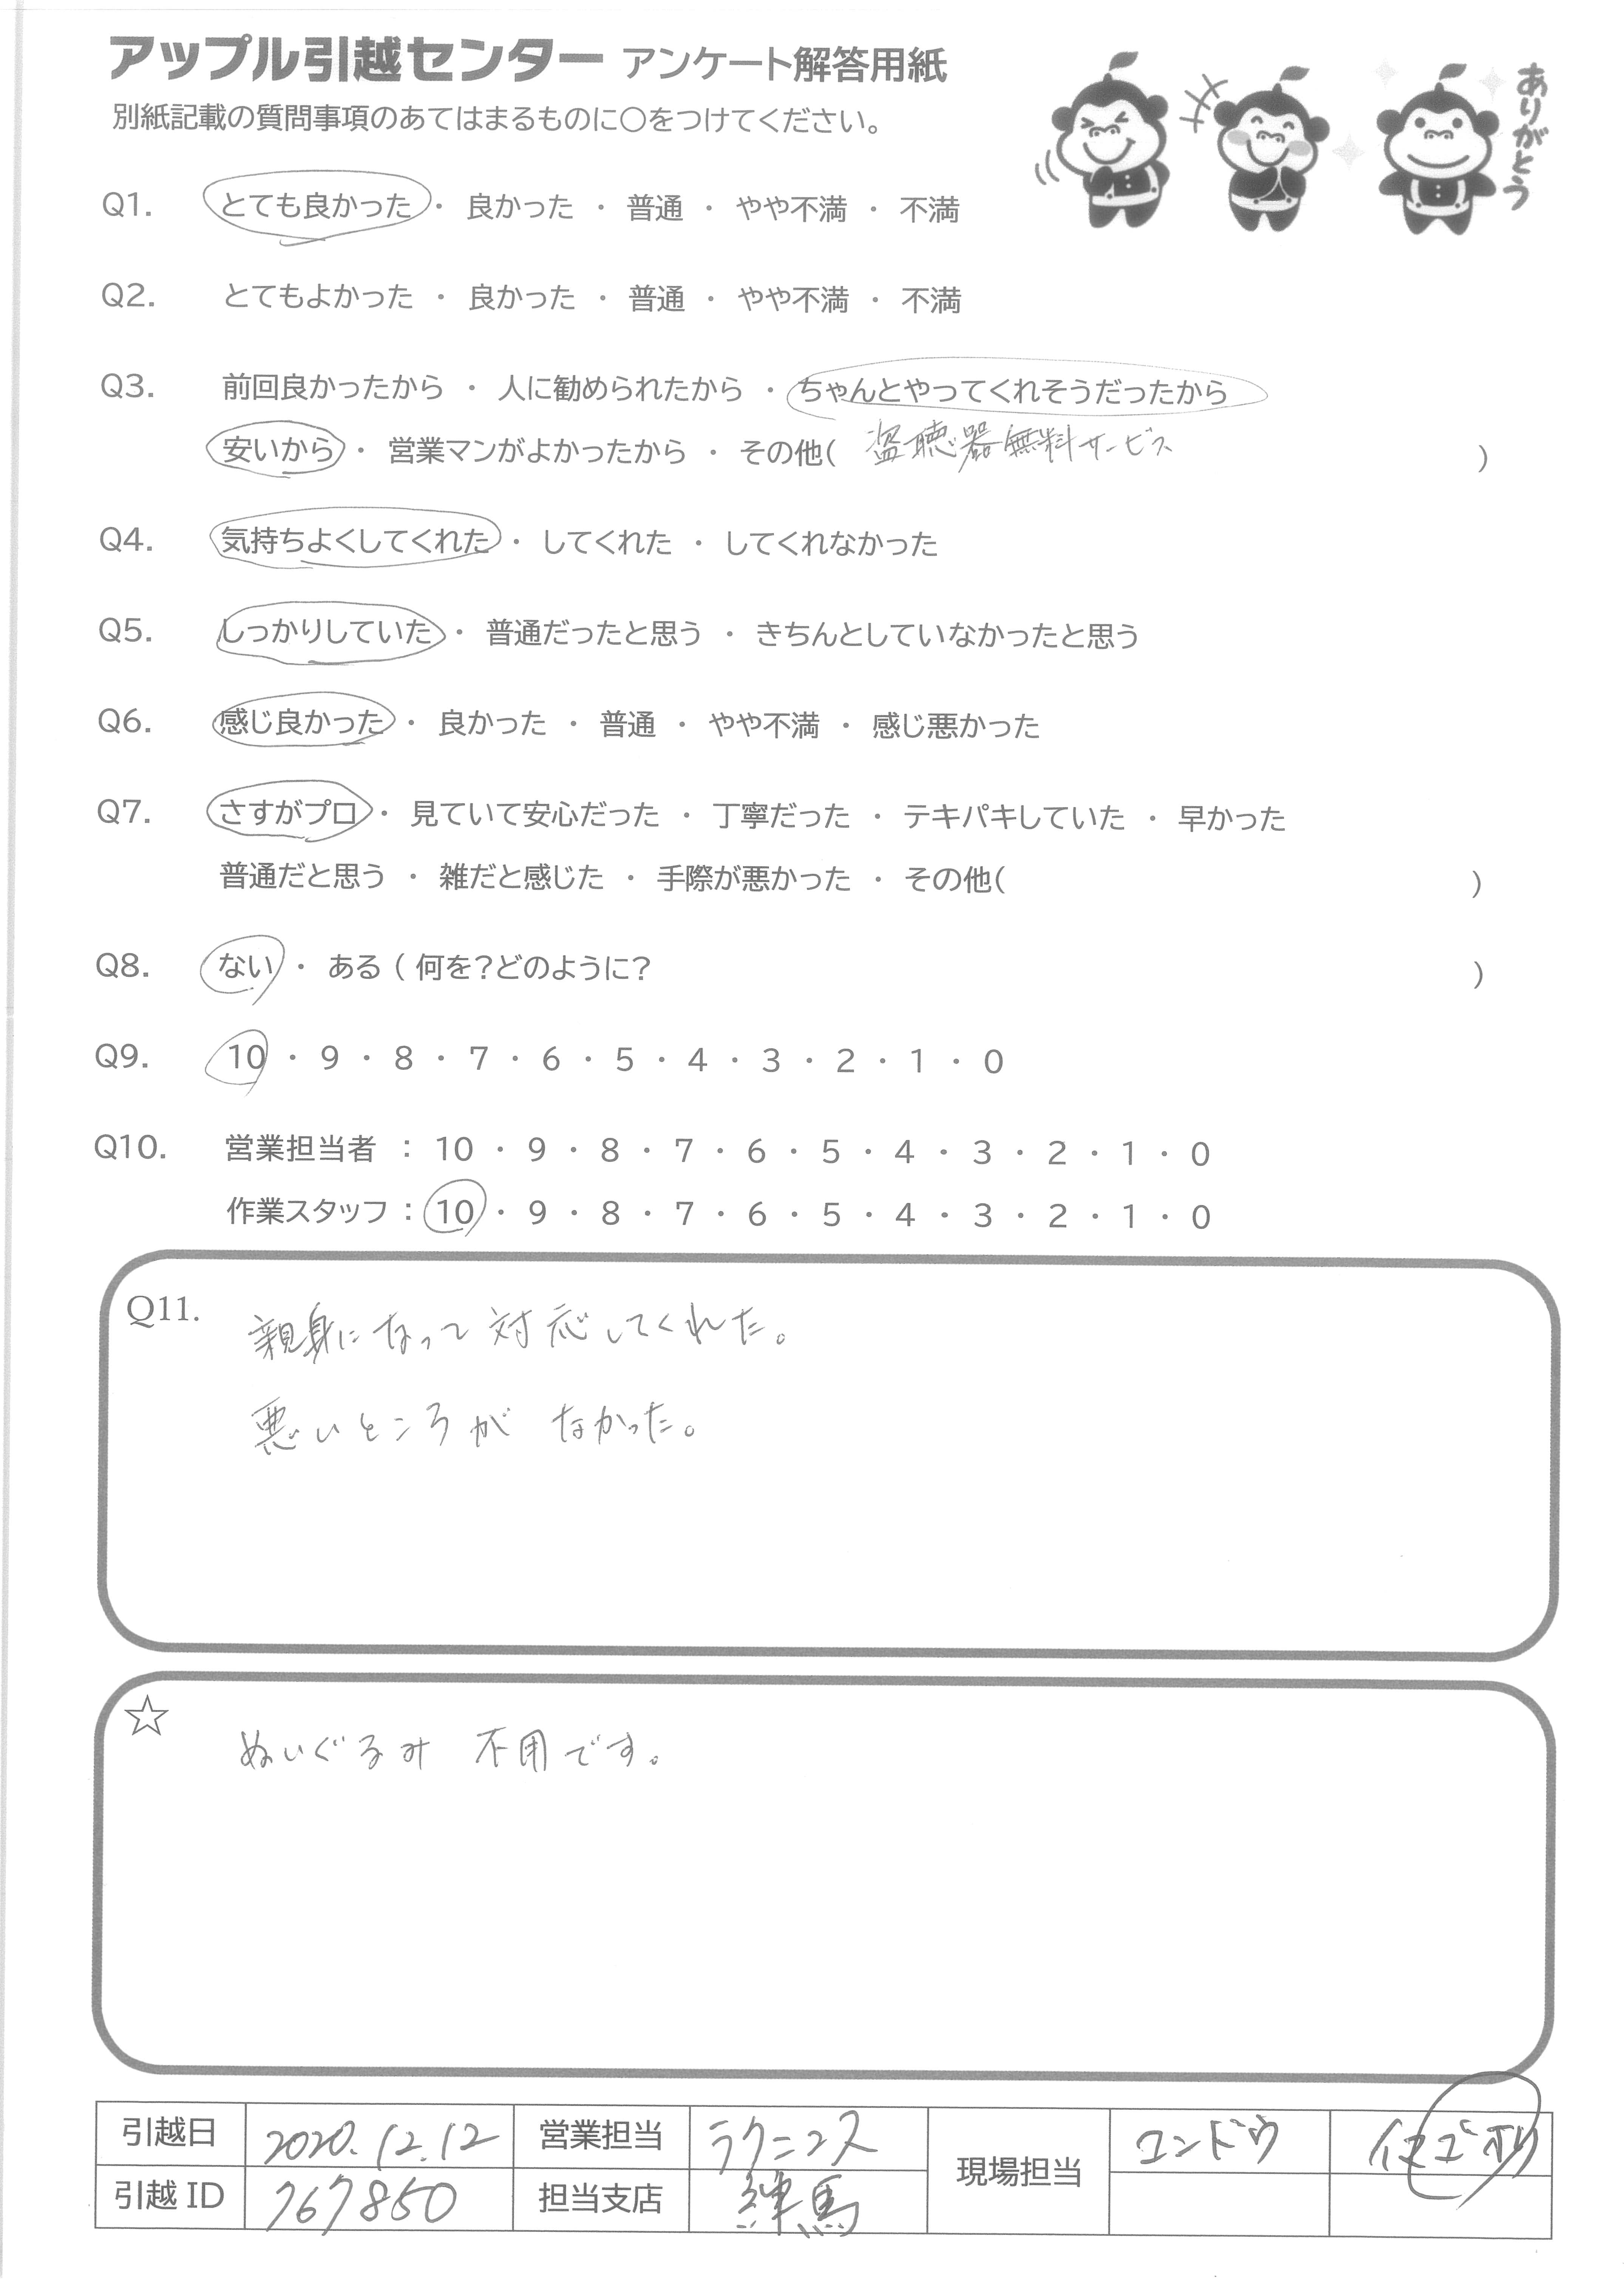 アップル引越センター アンケート解答用紙
別紙記載の質問事項のあてはまるものに○をつけてください。
ありがとう
Q1. とても良かった ・ 良かった ・ 普通 ・ やや不満 ・ 不満
Q2. とてもよかった ・ 良かった ・ 普通 ・ やや不満 ・ 不満
Q3. 前回良かったから ・ 人に勧められたから ・ ちゃんとやってくれそうだったから
安いから ・ 営業マンがよかったから ・ その他( 盗聴器無料サービス )
Q4. 気持ちよくしてくれた ・ してくれた ・ してくれなかった
Q5. しっかりしていた ・ 普通だったと思う ・ きちんとしていなかったと思う
Q6. 感じ良かった ・ 良かった ・ 普通 ・ やや不満 ・ 感じ悪かった
Q7. さすがプロ ・ 見ていて安心だった ・ 丁寧だった ・ テキパキしていた ・ 早かった
普通だと思う ・ 雑だと感じた ・ 手際が悪かった ・ その他( )
Q8. ない ・ ある ( 何を?どのように? )
Q9. 10 ・ 9 ・ 8 ・ 7 ・ 6 ・ 5 ・ 4 ・ 3 ・ 2 ・ 1 ・ 0
Q10. 営業担当者 : 10 ・ 9 ・ 8 ・ 7 ・ 6 ・ 5 ・ 4 ・ 3 ・ 2 ・ 1 ・ 0
作業スタッフ : 10 ・ 9 ・ 8 ・ 7 ・ 6 ・ 5 ・ 4 ・ 3 ・ 2 ・ 1 ・ 0
Q11. 親身になって対応してくれた。
悪いところが なかった。
☆ ぬいぐるみ 不用です。
引越日 2020.12.12 営業担当 現場担当 エンドウ
引越 ID 767850 担当支店 練馬